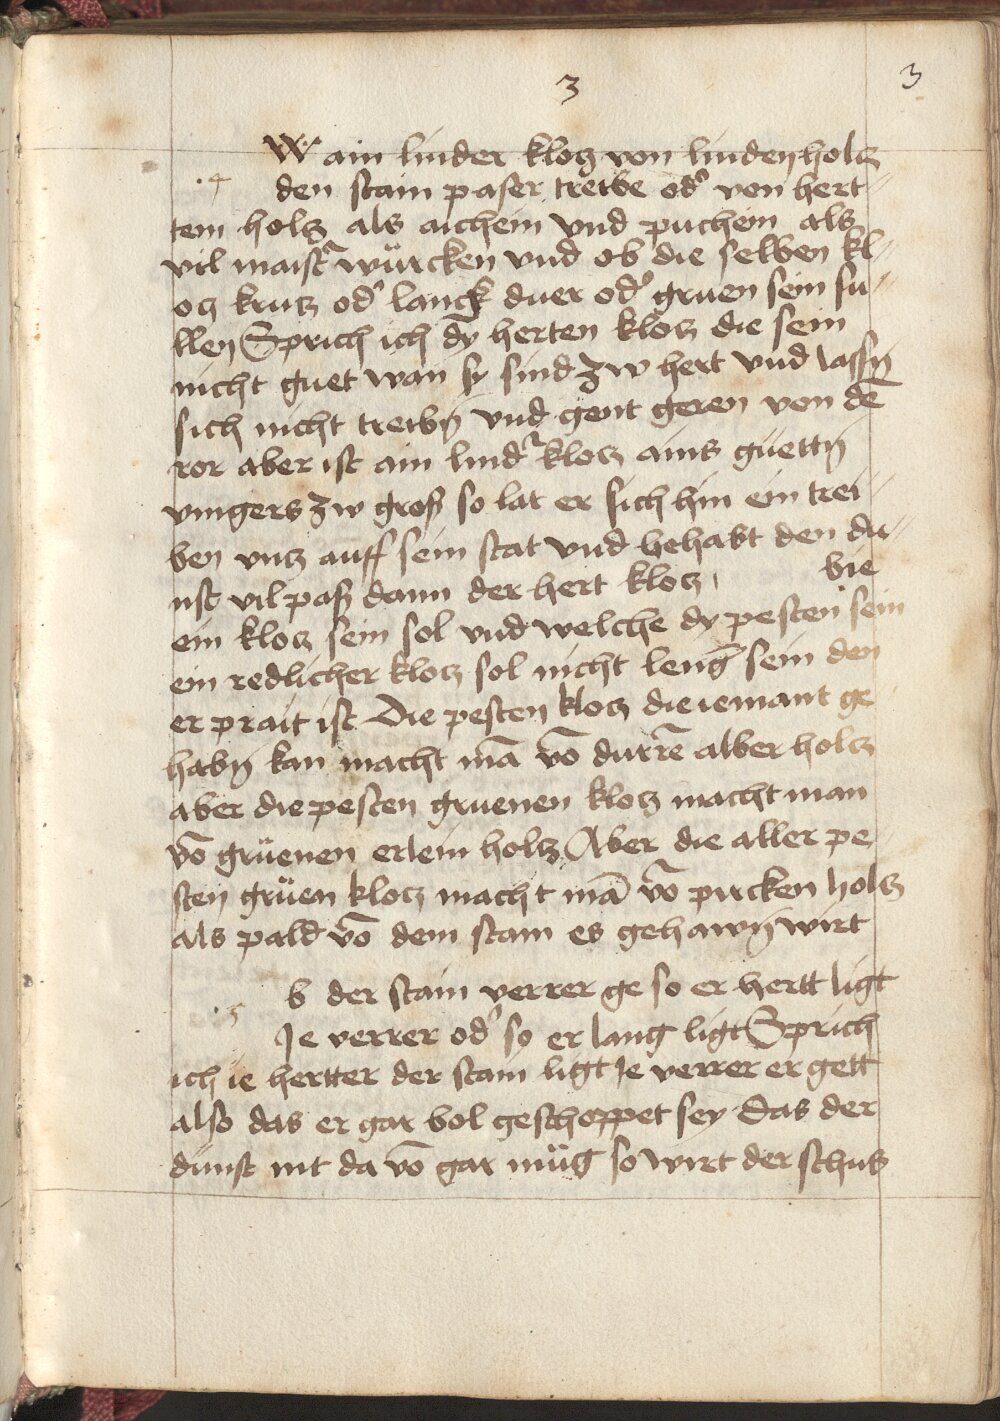 3 3
W ain linder klotz von linden holtz
.4 den stain paser treibe od' von hert-
tem holtz als aichein vnd puchein als
vil maist' würcken vnd ob die selben kl-
otz krutz od' lanck duer od' gruen sein su-
llen Sprich ich dy herten klotz die sein
nicht guet wan sy sind zw hert vnd lassn̄
sich nicht treibn̄ vnd gent geren von dē
ror aber ist ain lind' klotz ains guettn̄
vingers zw groß so lat er sich hin ein trei-
ben vntz auff sein stat vnd behabt den du-
nst vil paß dann der hert klotz bie
ein klotz sein sol vnd welche dy pesten sein
ein redlicher klotz sol nicht leng' sein den
er prait ist Die pesten klotz die iemant ge
habn̄ kan macht mā vō durrē alber holtz
aber die pesten gruenen klotz macht man
vō grüenen erlein holtz Aber die aller pe-
sten grüen klotz macht mā vō pircken holtz
als pald vō dem stam es gehawn̄ wirt
b der stain verrer ge so er hertt ligt
.5 Je verrer od' so er lang ligt Sprich
ich ie hertter der stain ligt Je verrer er gett
also das er gar bol geschoppet sey Das der
dunst nit da vō gar müg so wirt der schus